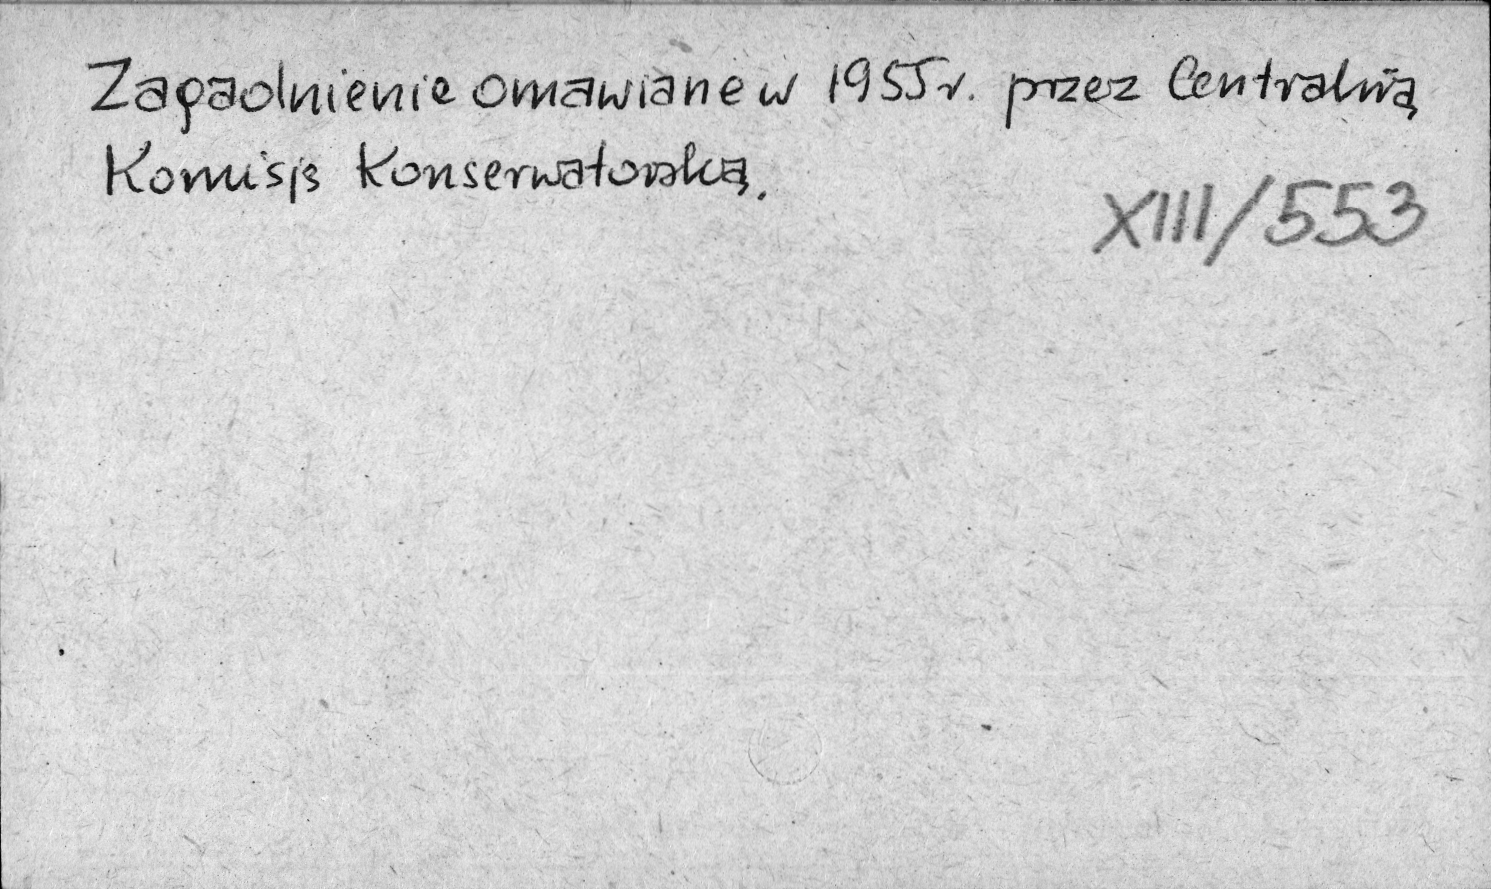 Zagadnienie omawiane w 1955 r. przez Centralną
Komisję Konserwatorską.
XIII/553